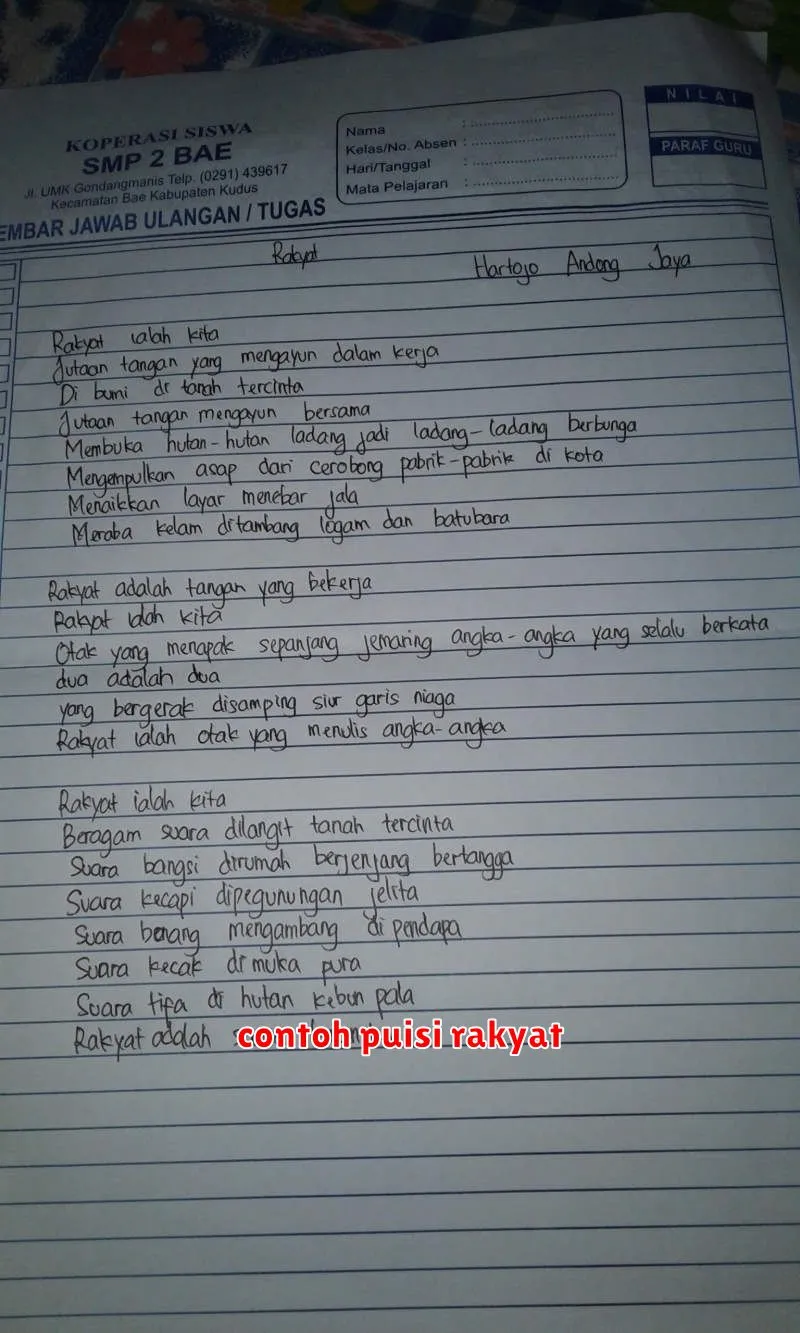 KOPERASI SISWA
SMP 2 BAE
Jl. UMK Gondangmanis Telp. (0291) 439617
Kecamatan Bae Kabupaten Kudus
EMBAR JAWAB ULANGAN / TUGAS
Nama :
Kelas/No. Absen :
Hari/Tanggal :
Mata Pelajaran :
NILAI
PARAF GURU
Rakyat
Hartojo Andong Jaya
Rakyat ialah kita
Jutaan tangan yang mengayun dalam kerja
Di bumi di tanah tercinta
Jutaan tangan mengayun bersama
Membuka hutan-hutan ladang jadi ladang-ladang berbunga
Mengempulkan asap dari cerobong pabrik-pabrik di kota
Menaikkan layar menebar jala
Meraba kelam ditambang logam dan batubara
Rakyat adalah tangan yang bekerja
Rakyat ialah kita
Otak yang menapak sepanjang jemaring angka-angka yang selalu berkata
dua adalah dua
yang bergerak disamping siur garis niaga
Rakyat ialah otak yang menulis angka-angka
Rakyat ialah kita
Beragam suara dilangit tanah tercinta
Suara bangsi dirumah berjenjang bertangga
Suara kecapi dipegunungan jelita
Suara bonang mengambang di pendapa
Suara kecak di muka pura
Suara tifa di hutan kebun pala
Rakyat adalah
contoh puisi rakyat